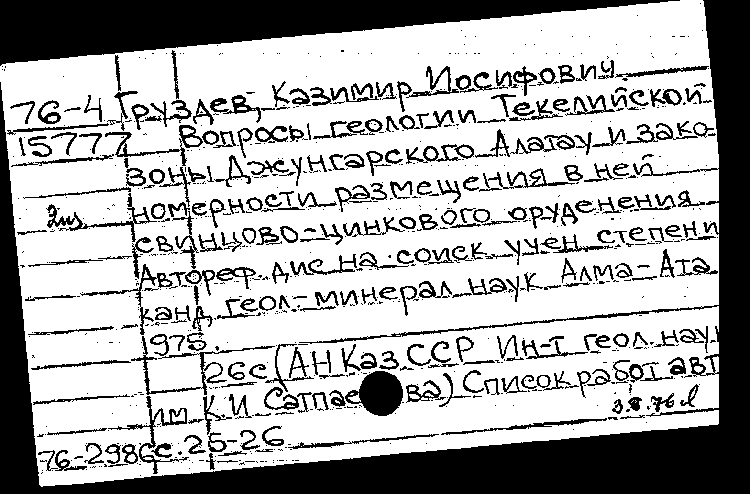 76-4 Груздев, Казимир Иосифович.
15777 Вопросы геологии Текелийской
зоны Джунгарского Алатау и зако-
2из номерности размещения в ней
свинцово-цинкового оруденения
Автореф. дис на соиск учен степени
канд. геол.-минерал наук Алма-Ата
1975.
26с (АН Каз ССР Ин-т геол. наук
им К.И Сатпаева) Список работ авт
3.8.76
76-2986 с.25-26